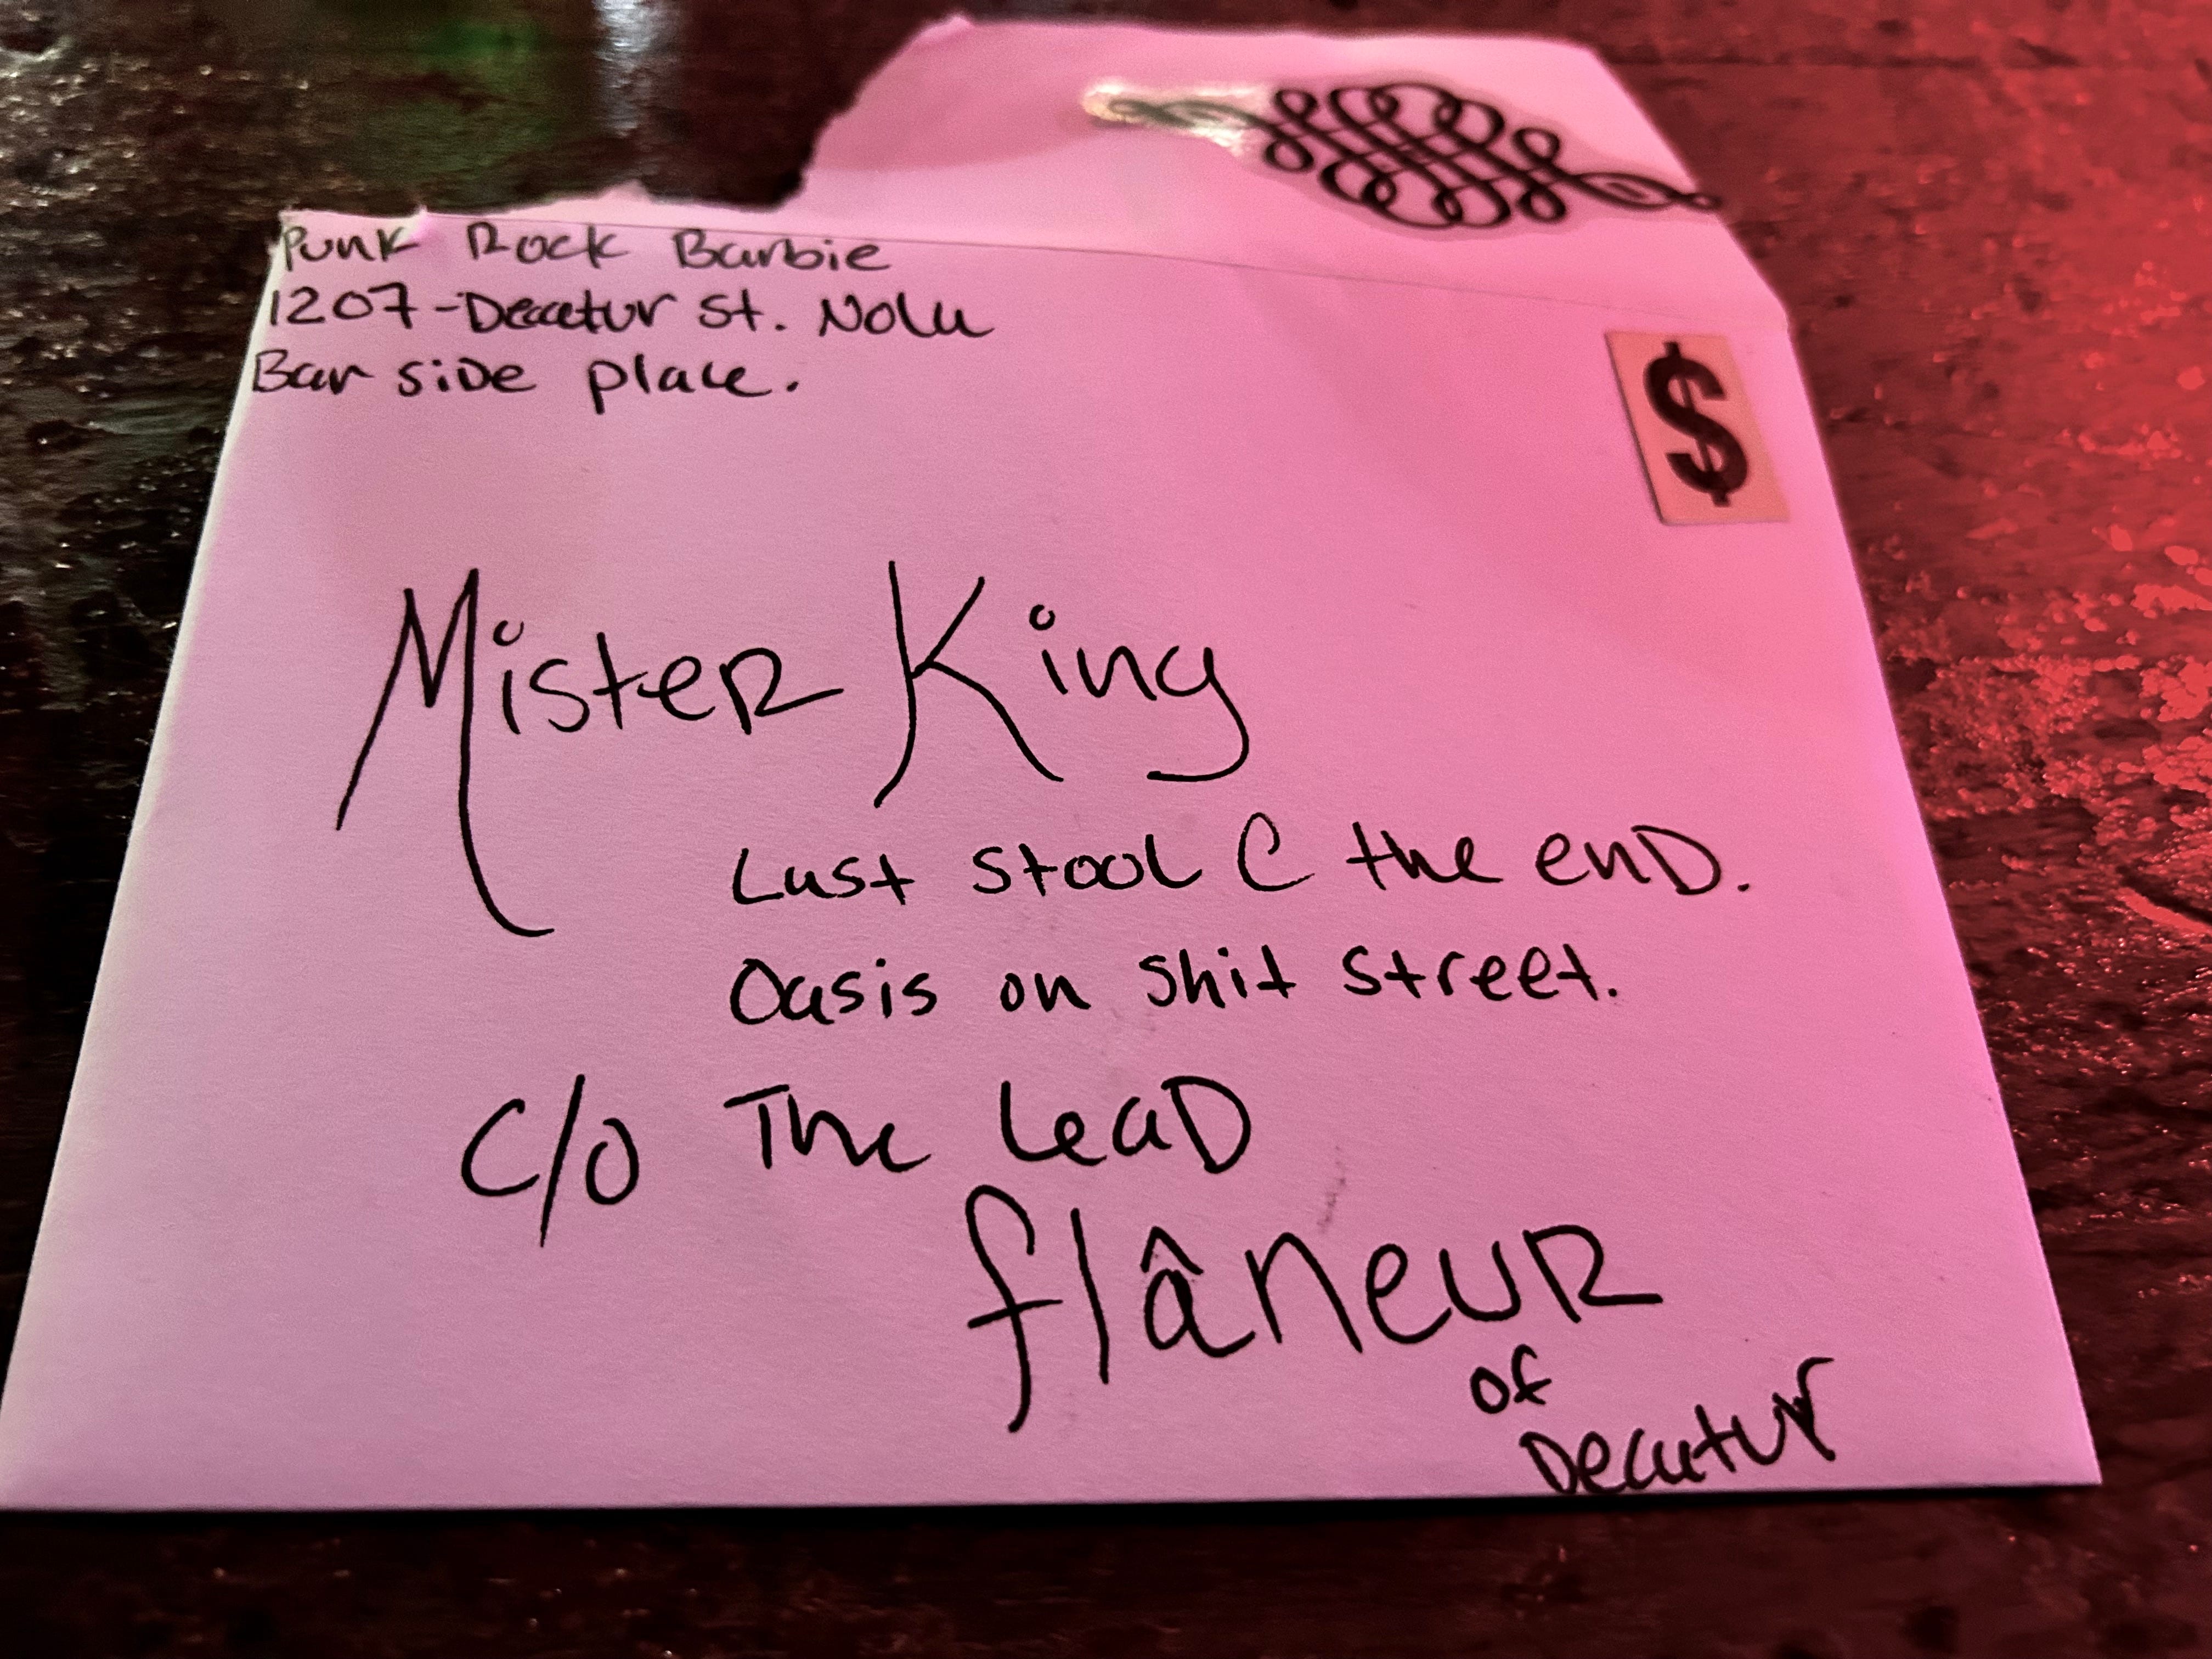 Punk Rock Barbie
1207-Decatur St. Nola
Bar side place.
$
Mister King
Last stool @ the end.
Oasis on Shit Street.
C/O The Lead
flâneur
of
Decatur